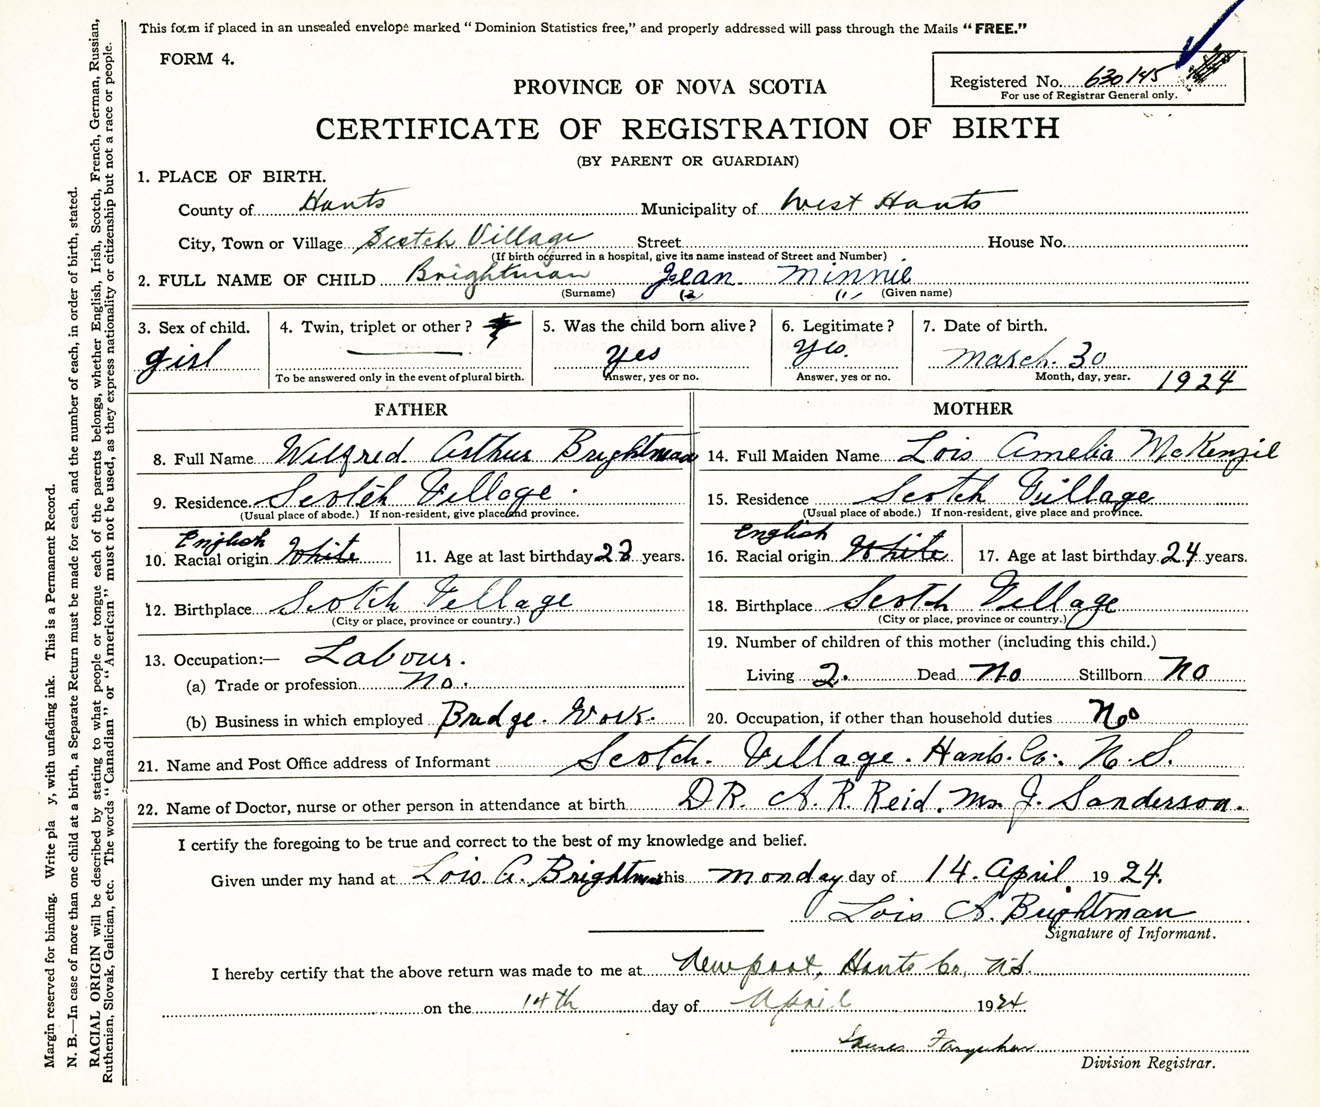 This form if placed in an unsealed envelope marked "Dominion Statistics free," and properly addressed will pass through the Mails "FREE."
FORM 4.
Registered No. 630145
For use of Registrar General only.
PROVINCE OF NOVA SCOTIA
CERTIFICATE OF REGISTRATION OF BIRTH
(BY PARENT OR GUARDIAN)
1. PLACE OF BIRTH.
County of Hants Municipality of West Hants
City, Town or Village Scotch Village Street House No.
(If birth occurred in a hospital, give its name instead of Street and Number)
2. FULL NAME OF CHILD Brightman Jean Minnie
(Surname) (2 (1) (Given name)
3. Sex of child. 4. Twin, triplet or other? 5. Was the child born alive? 6. Legitimate? 7. Date of birth.
girl yes yes. March. 30
To be answered only in the event of plural birth. Answer, yes or no. Answer, yes or no. Month, day, year. 1924
FATHER MOTHER
8. Full Name Wilfred Arthur Brightman 14. Full Maiden Name Lois Amelia McKenzie
9. Residence Scotch Village. 15. Residence Scotch Village
(Usual place of abode.) If non-resident, give place and province. (Usual place of abode.) If non-resident, give place and province.
English English
10. Racial origin White 11. Age at last birthday years. 16. Racial origin White 17. Age at last birthday 24 years.
12. Birthplace Scotch Village 18. Birthplace Scotch Village
(City or place, province or country.) (City or place, province or country.)
13. Occupation:— Labour. 19. Number of children of this mother (including this child.)
(a) Trade or profession No. Living 2. Dead No Stillborn No
(b) Business in which employed Bridge. Work. 20. Occupation, if other than household duties No
21. Name and Post Office address of Informant Scotch. Village. Hants. Co. N.S.
22. Name of Doctor, nurse or other person in attendance at birth DR. A. R. Reid. Mrs J. Sanderson.
I certify the foregoing to be true and correct to the best of my knowledge and belief.
Given under my hand at Lois. A. Brightman this Monday day of 14. April 1924.
Lois A. Brightman
Signature of Informant.
I hereby certify that the above return was made to me at Newport, Hants Co, N.S.
on the 14th day of April 1924
Division Registrar.
Margin reserved for binding. Write pla y, with unfading ink. This is a Permanent Record.
N. B.—In case of more than one child at a birth, a Separate Return must be made for each, and the number of each, in order of birth, stated.
RACIAL ORIGIN will be described by stating to what people or tongue each of the parents belongs, whether English, Irish, Scotch, French, German, Russian,
Ruthenian, Slovak, Galician, etc. The words "Canadian" or "American" must not be used, as they express nationality or citizenship but not a race or people.